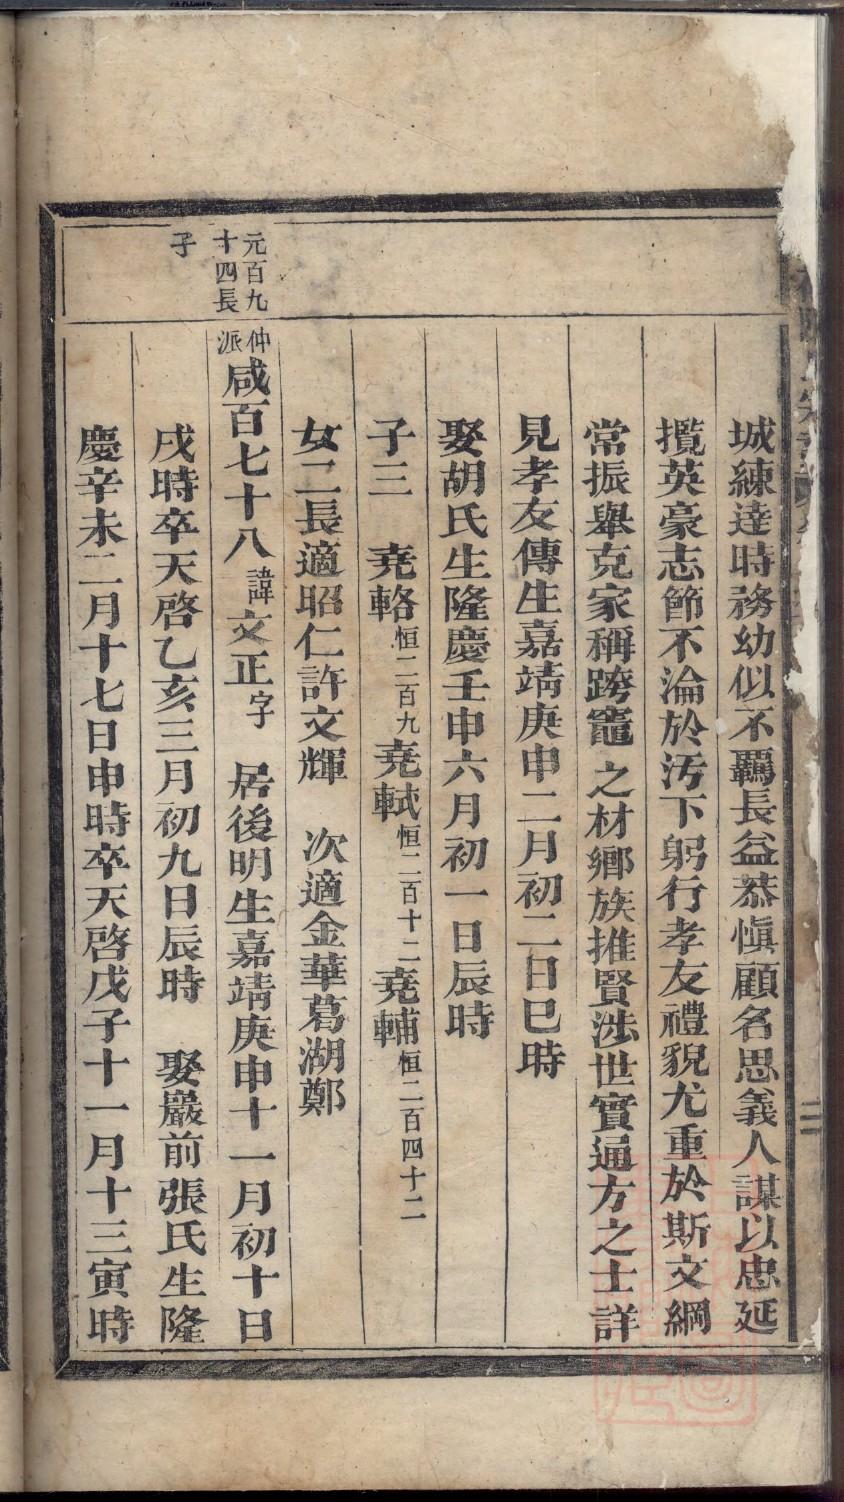 城練達時務幼似不羈長益恭愼顧名思義人謀以忠延
攬英豪志節不淪於汚下躬行孝友禮貌尤重於斯文綱
常振舉克家稱跨竈之材鄉族推賢涉世實通方之士詳
見孝友傳生嘉靖庚申二月初二日巳時
娶胡氏生隆慶壬申六月初一日辰時
子三 堯輅恒二百九堯軾恒二百十二堯輔恒二百四十二
女二長適昭仁許文輝 次適金華葛湖鄭
元百九十四長子
仲派咸百七十八諱文正字 居後明生嘉靖庚申十一月初十日
戌時卒天啓乙亥三月初九日辰時 娶嚴前張氏生隆
慶辛未二月十七日申時卒天啓戊子十一月十三寅時